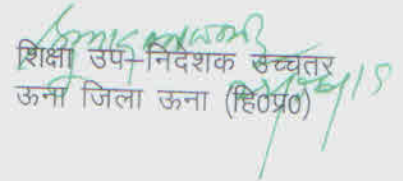 शिक्षा उप-निदेशक उच्चतर
ऊना जिला ऊना (हि0प्र0)